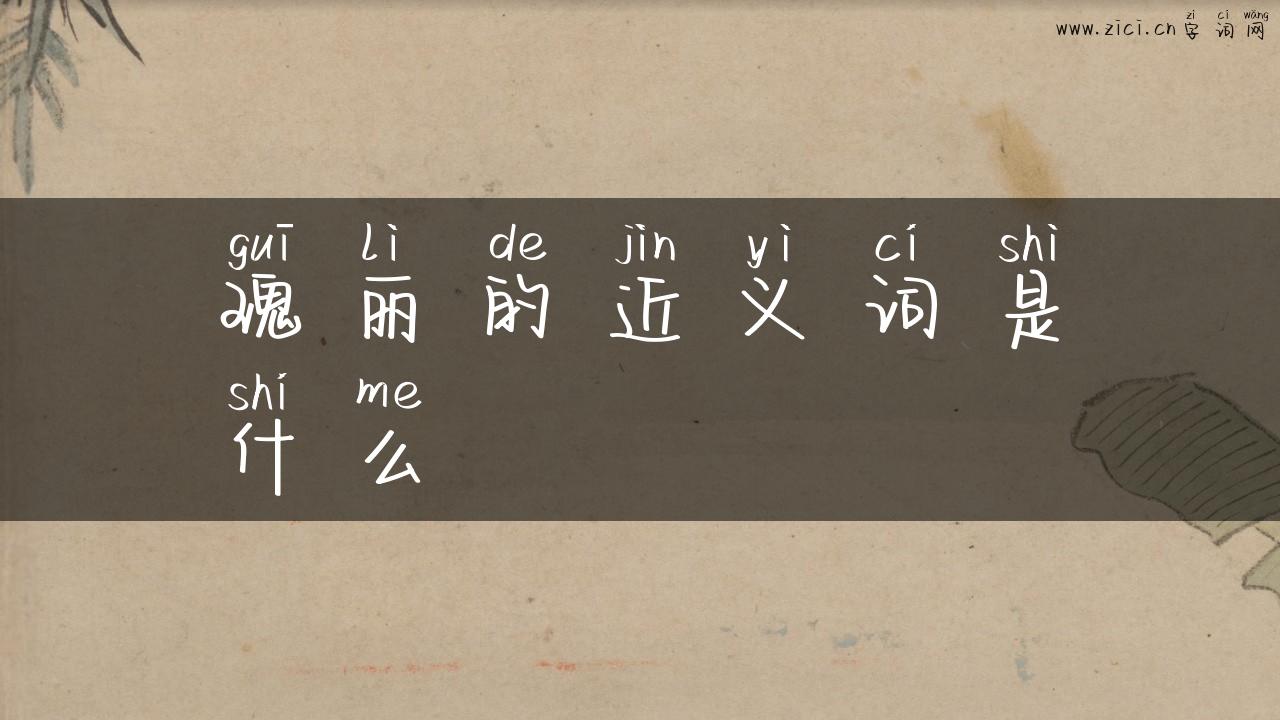 zì cí wǎng
www.zici.cn 字词网
guī lì de jìn yì cí shì
瑰丽的近义词是
shí me
什么